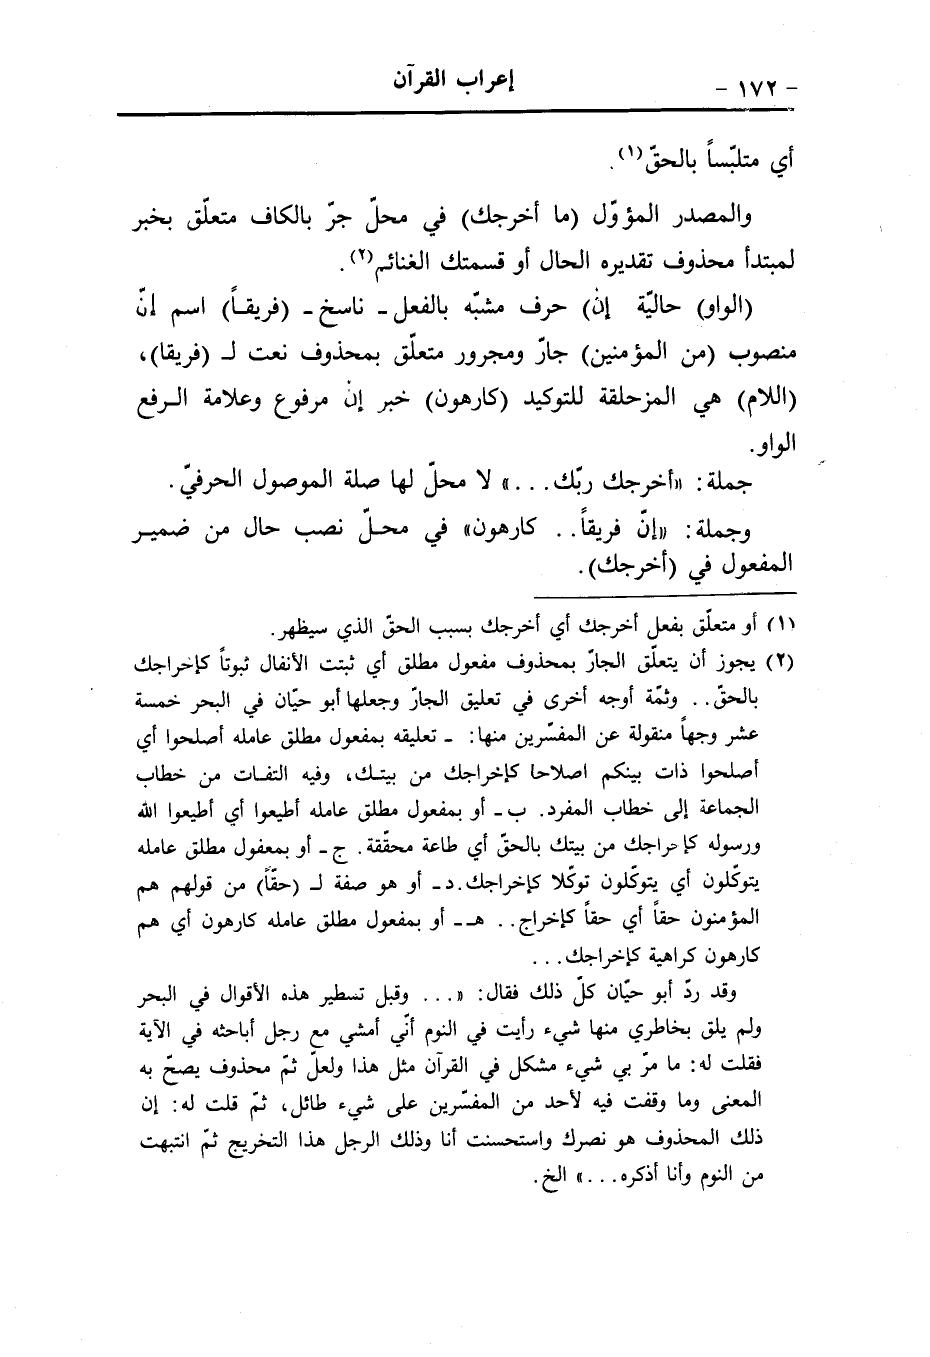 - ١٧٢ -
إعراب القرآن
أي متلبّساً بالحقّ(١).
والمصدر المؤوّل (ما أخرجك) في محلّ جرّ بالكاف متعلّق بخبر
لمبتدأ محذوف تقديره الحال أو قسمتك الغنائم(٢).
(الواو) حاليّة إنّ) حرف مشبّه بالفعل - ناسخ - (فريقاً) اسم انّ
منصوب (من المؤمنين) جارّ ومجرور متعلّق بمحذوف نعت لـ (فريقا)،
(اللام) هي المزحلقة للتوكيد (كارهون) خبر إنّ مرفوع وعلامة الرفع
الواو.
جملة: «أخرجك ربّك...» لا محلّ لها صلة الموصول الحرفيّ.
وجملة: «إنّ فريقاً.. كارهون» في محلّ نصب حال من ضمير
المفعول في (أخرجك).
(١) أو متعلّق بفعل أخرجك أي أخرجك بسبب الحقّ الذي سيظهر.
(٢) يجوز أن يتعلّق الجارّ بمحذوف مفعول مطلق أي ثبتت الأنفال ثبوتاً كإخراجك
بالحقّ.. وثمّة أوجه أخرى في تعليق الجارّ وجعلها أبو حيّان في البحر خمسة
عشر وجهاً منقولة عن المفسّرين منها: - تعليقه بمفعول مطلق عامله أصلحوا أي
أصلحوا ذات بينكم اصلاحا كإخراجك من بيتك، وفيه التفات من خطاب
الجماعة إلى خطاب المفرد. ب - أو بمفعول مطلق عامله أطيعوا أي أطيعوا الله
ورسوله كإخراجك من بيتك بالحقّ أي طاعة محقّقة. ج - أو بمعفول مطلق عامله
يتوكّلون أي يتوكّلون توكّلا كإخراجك. د - أو هو صفة لـ (حقّاً) من قولهم هم
المؤمنون حقاً أي حقاً كإخراج.. هـ - أو بمفعول مطلق عامله كارهون أي هم
كارهون كراهية كإخراجك...
وقد ردّ أبو حيّان كلّ ذلك فقال: «... وقبل تسطير هذه الأقوال في البحر
ولم يلق بخاطري منها شيء رأيت في النوم أنّي أمشي مع رجل أباحثه في الآية
فقلت له: ما مرّ بي شيء مشكل في القرآن مثل هذا ولعلّ ثمّ محذوف يصحّ به
المعنى وما وقفت فيه لأحد من المفسّرين على شيء طائل، ثمّ قلت له: إن
ذلك المحذوف هو نصرك واستحسنت أنا وذلك الرجل هذا التخريج ثمّ انتبهت
من النوم وأنا أذكره...» الخ.